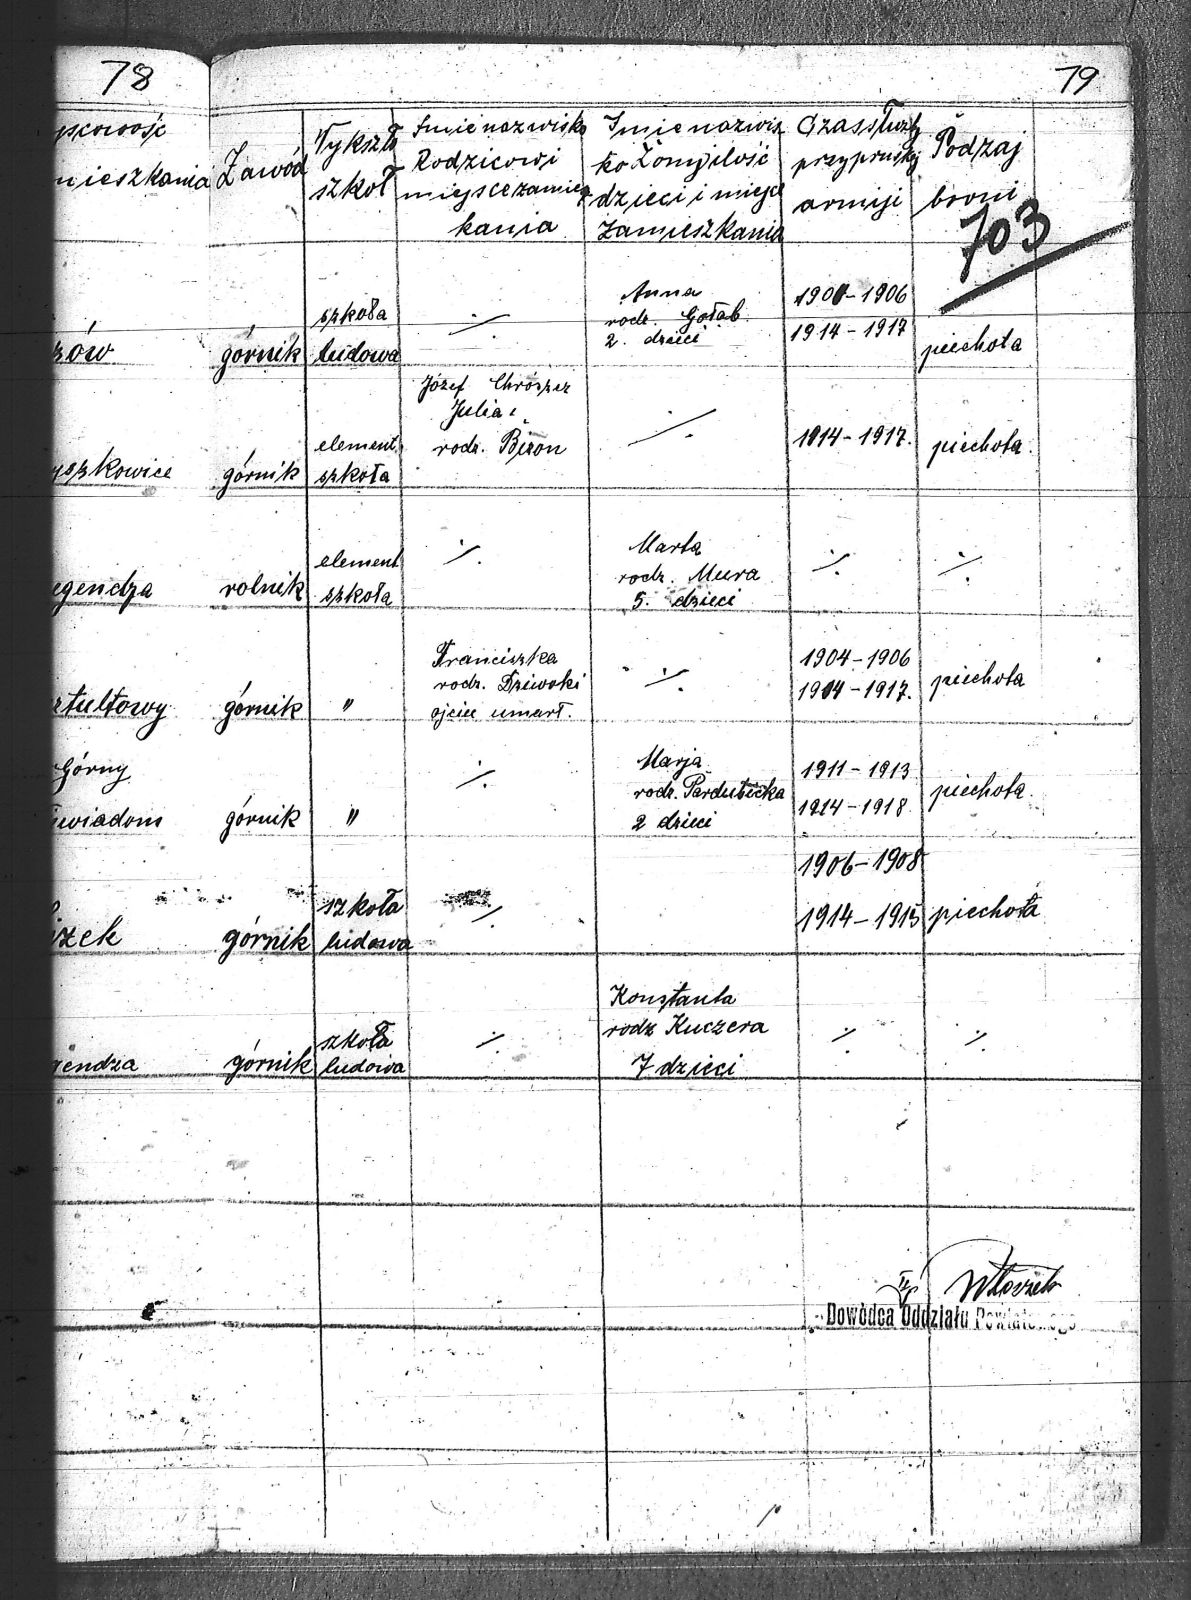 78
79
nieszkania
Zawód
Wykszt
szkoł
Imie nazwisko
Rodzicowi
miejsce zamiesz
kania
Imie nazwis
ko Żony ilość
dzieci i miejsc
zamieszkania
Czas służby
przy prusky
armiji
Rodzaj
broni
703
zów
górnik
szkoła
ludowa
./.
Anna
rodz. Gołąb
2. dzieci
1901-1906
1914-1917
piechota
yszkowice
górnik
element.
szkoła
Józef Chroszcz
Julia
rodz. Bizon
./.
1914-1917.
piechota.
egendza
rolnik
element
szkoła
./.
Marta
rodz. Mura
5. dzieci
./.
./.
ztultowy
górnik
"
Franciszka
rodz. Dziwoki
ojciec umarł.
./.
1904-1906
1914-1917.
piechota
Górny
górnik
"
./.
Marja
rodz. Pardubicka
2 dzieci
1911-1913
1914-1918
piechota.
wiadom
iszek
górnik
szkoła
ludowa
./.
1906-1908
1914-1915
piechota
rendza
górnik
szkoła
ludowa
./.
Konstanta
rodz Kuczera
7 dzieci
./.
./.
Dowódca Oddziału Powiatowego